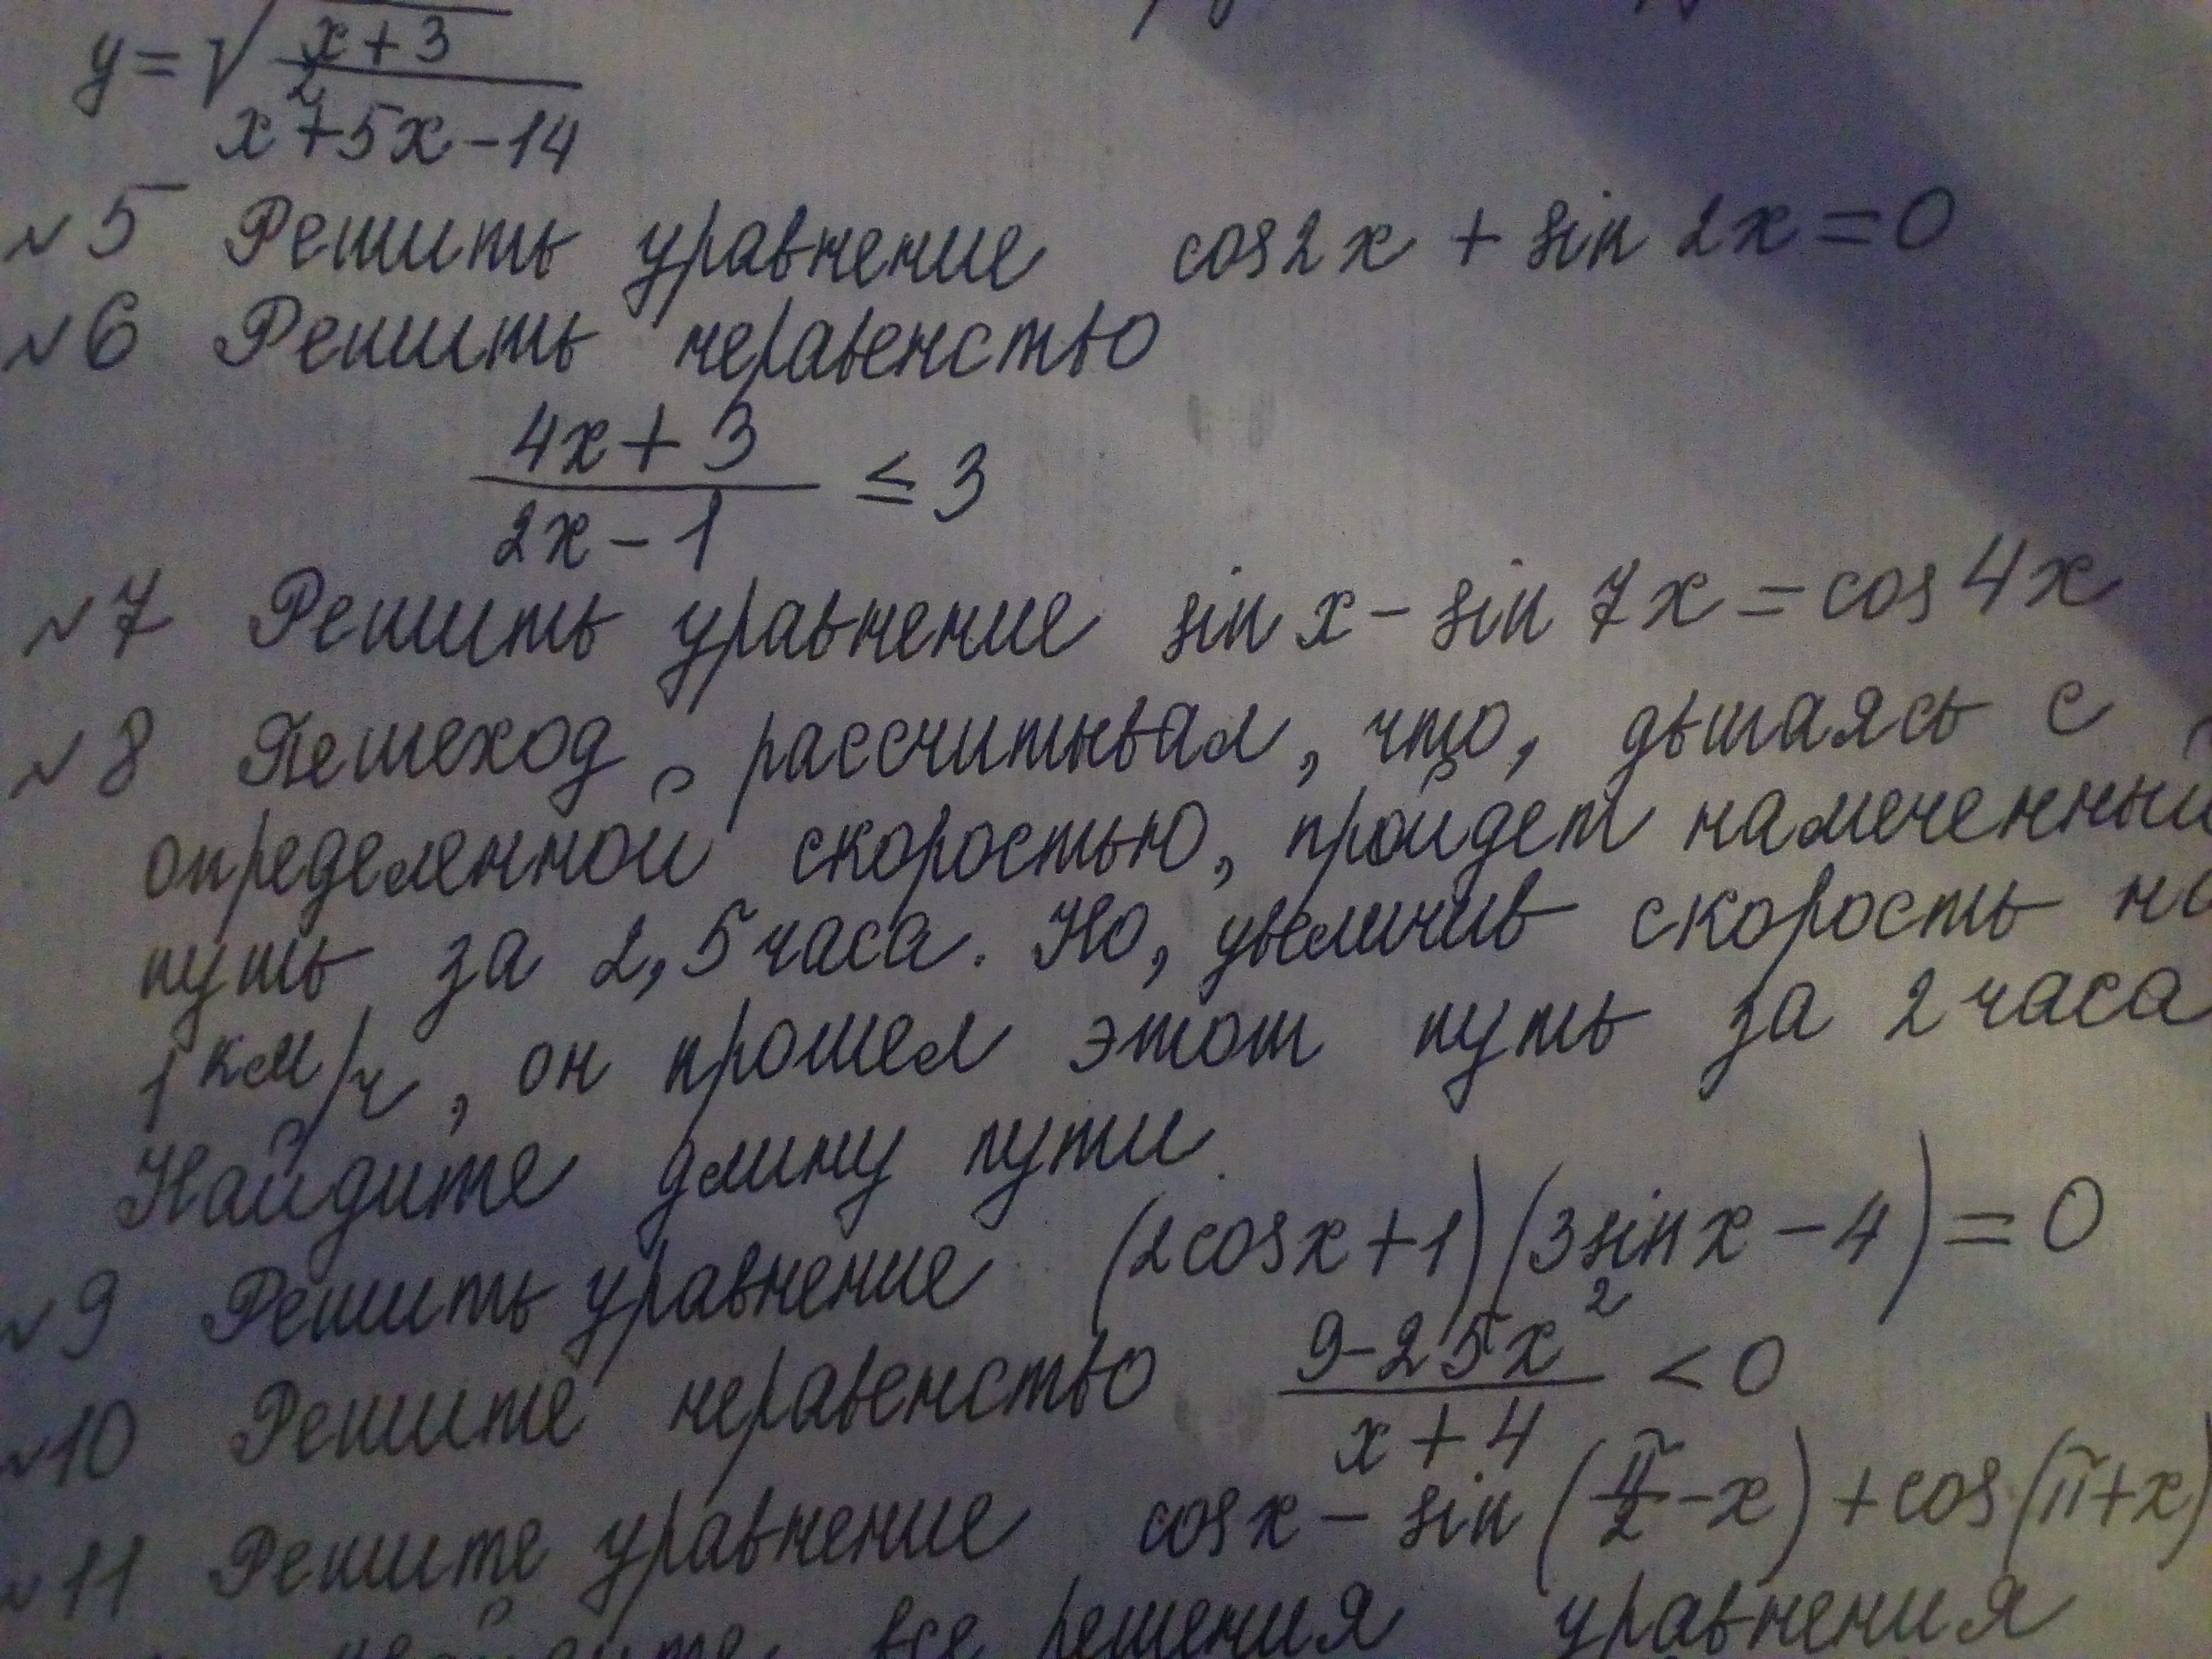 y = √(x+3)/(x²+5x-14)
№5 Решить уравнение cos2x + sin 2x = 0
№6 Решить неравенство
(4x+3)/(2x-1) ≤ 3
№7 Решить уравнение sin x - sin 7x = cos 4x
№8 Пешеход рассчитывал, что, двигаясь с
определенной скоростью, пройдет намеченный
путь за 2,5 часа. Но, увеличив скорость на
1 км/ч, он прошел этот путь за 2 часа
Найдите длину пути.
№9 Решить уравнение (2cosx+1)(3sinx-4)=0
№10 Решите неравенство (9-25x²)/(x+4) < 0
№11 Решите уравнение cosx - sin(π/2 - x) + cos(π+x)
все решения уравнения